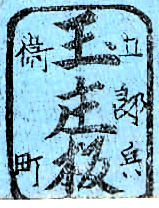 五郎兵
王走板
衛町